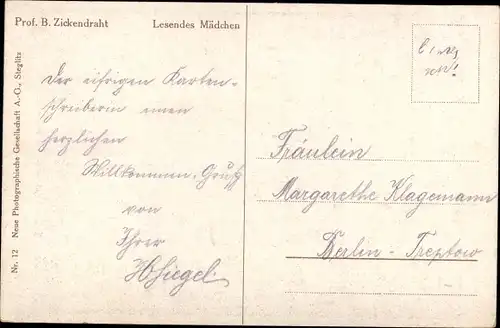 Prof. B. Zickendraht Lesendes Mädchen
Der eifrigen Karten-
schreiberin einen
herzlichen
Willkommen-Gruß
von
Ihrer
HSiegel.
Nr. 12 Neue Photographische Gesellschaft A.-G., Steglitz
Fräulein
Margarethe Klagemann
Berlin-Treptow